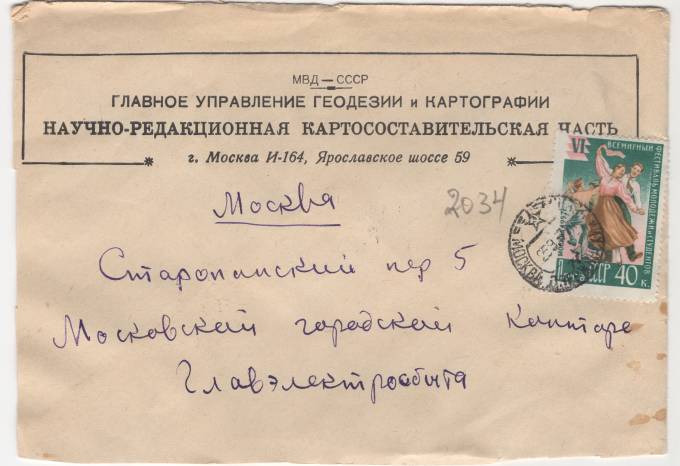 МВД — СССР
ГЛАВНОЕ УПРАВЛЕНИЕ ГЕОДЕЗИИ и КАРТОГРАФИИ
НАУЧНО-РЕДАКЦИОННАЯ КАРТОСОСТАВИТЕЛЬСКАЯ ЧАСТЬ
г. Москва И-164, Ярославское шоссе 59
VI
ВСЕМИРНЫЙ
ФЕСТИВАЛЬ МОЛОДЕЖИ И СТУДЕНТОВ
СССР 40 к.
МОСКВА
2034
Москва
Старопанский пер 5
Московский городской Конторе
Главэлектросбыта